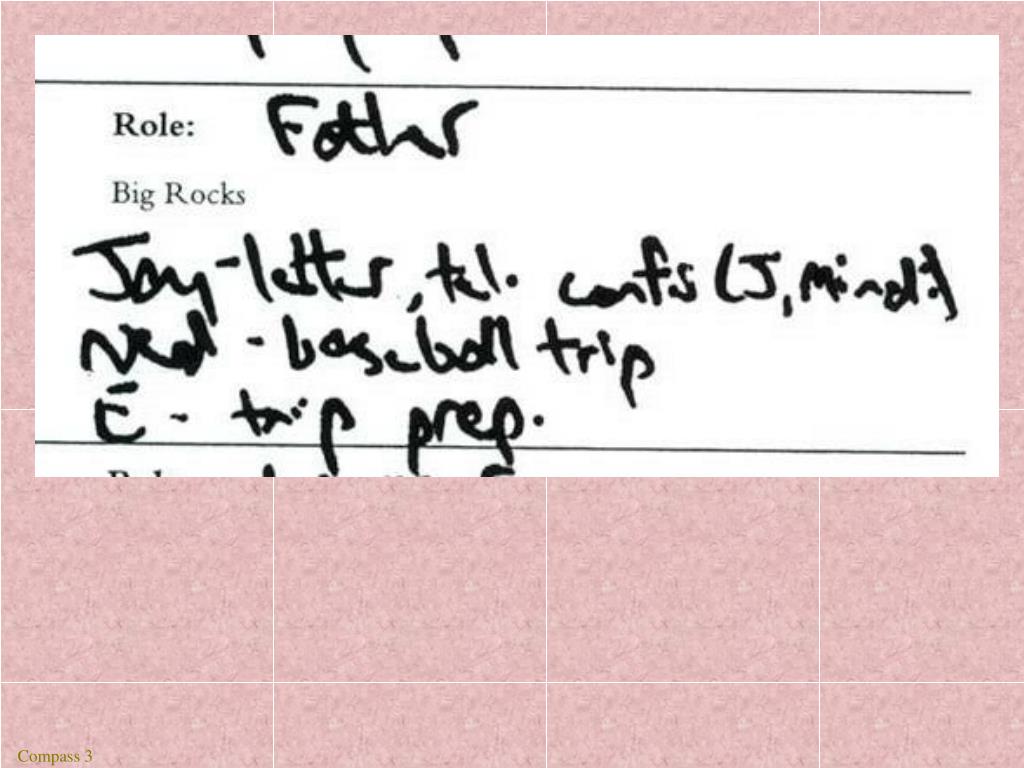 Role: Father
Big Rocks
Jay-letter, tel. confs (J, Mindi)
Ned - baseball trip
E - trip prep.
Compass 3